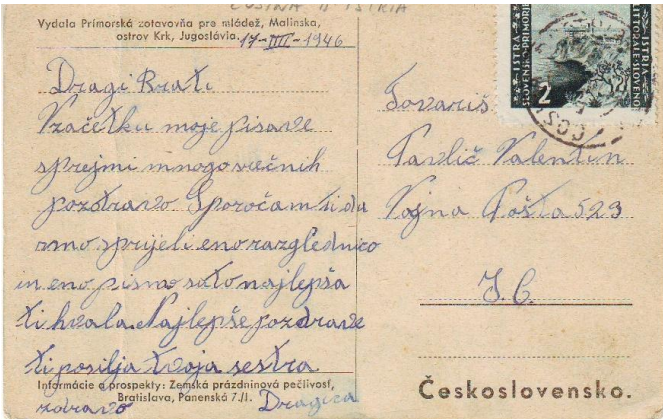 COSINA II ISTRIA
Vydala Prímorská zotavovňa pre mládež, Malinska,
ostrov Krk, Jugoslávia. 17-III-1946
Dragi Brati
Vzačetku moje pisave
sprejmi mnogo srečnih
pozdravo Sporočam ti da
smo sprijeli eno razglednico
in eno pismo sa to najlepša
ti hvala. Najlepše pozdrave
ti posilja tvoja sestra
zdravo Dragica
Informácie a prospekty: Zemská prázdninová pečlivosť,
Bratislava, Panenská 7./I.
ISTRA
SLOVENSKO-PRIMORJE
ISTRIA
LITTORALE-SLOVENO
2
Tovariš
Pavlič Valentin
Vojna Pošta 523
J.C.
Československo.